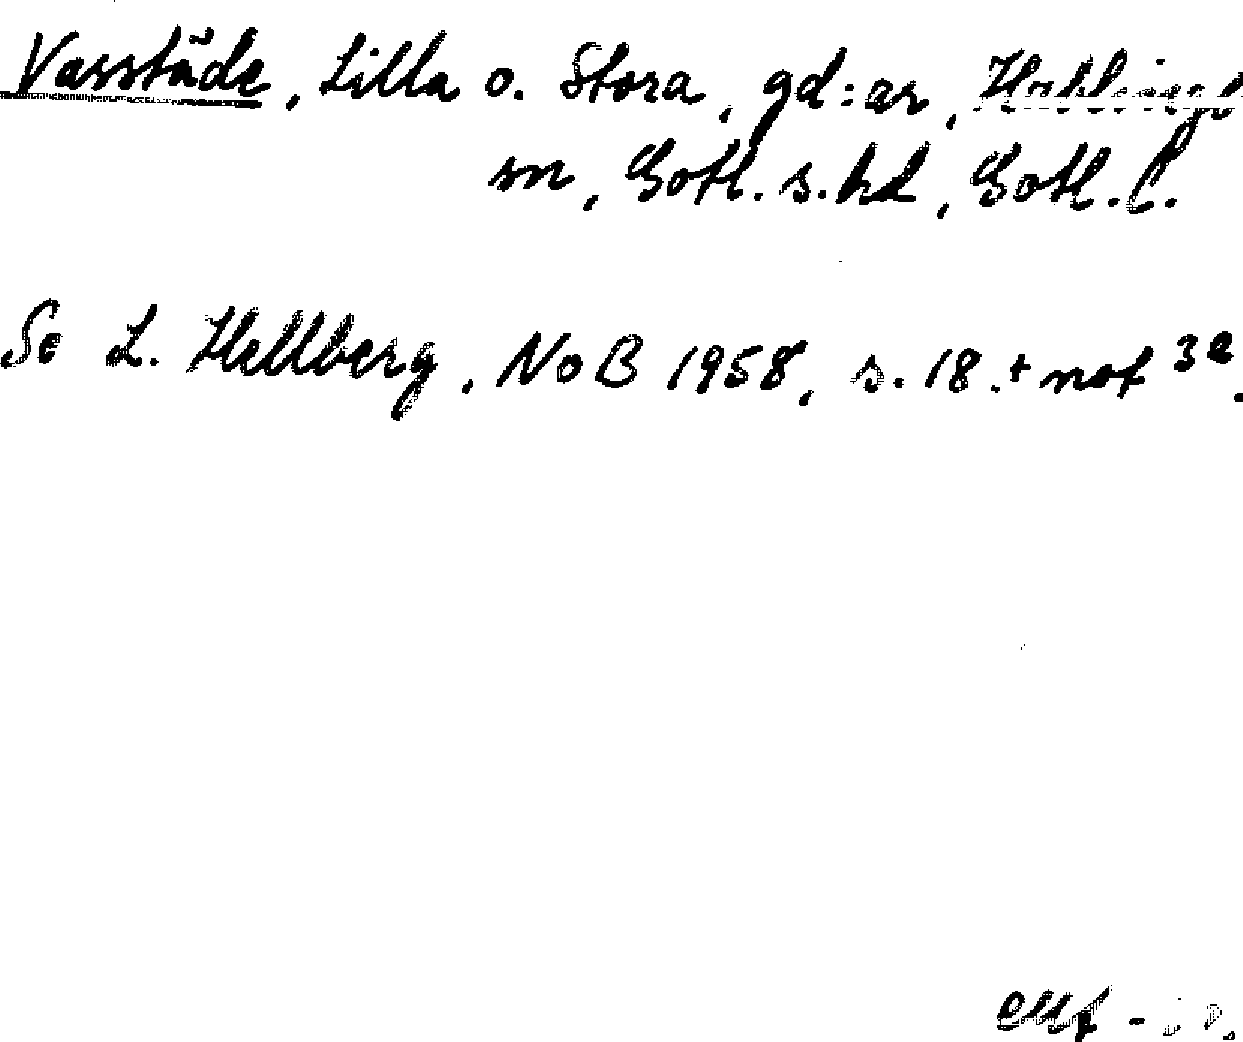 Vasstäde, Lilla o. Stora, gd:ar, Hablingb
sn, Gotl. s. hd, Gotl. l.
Se L. Hellberg, NoB 1958, s. 18 + not 3a.